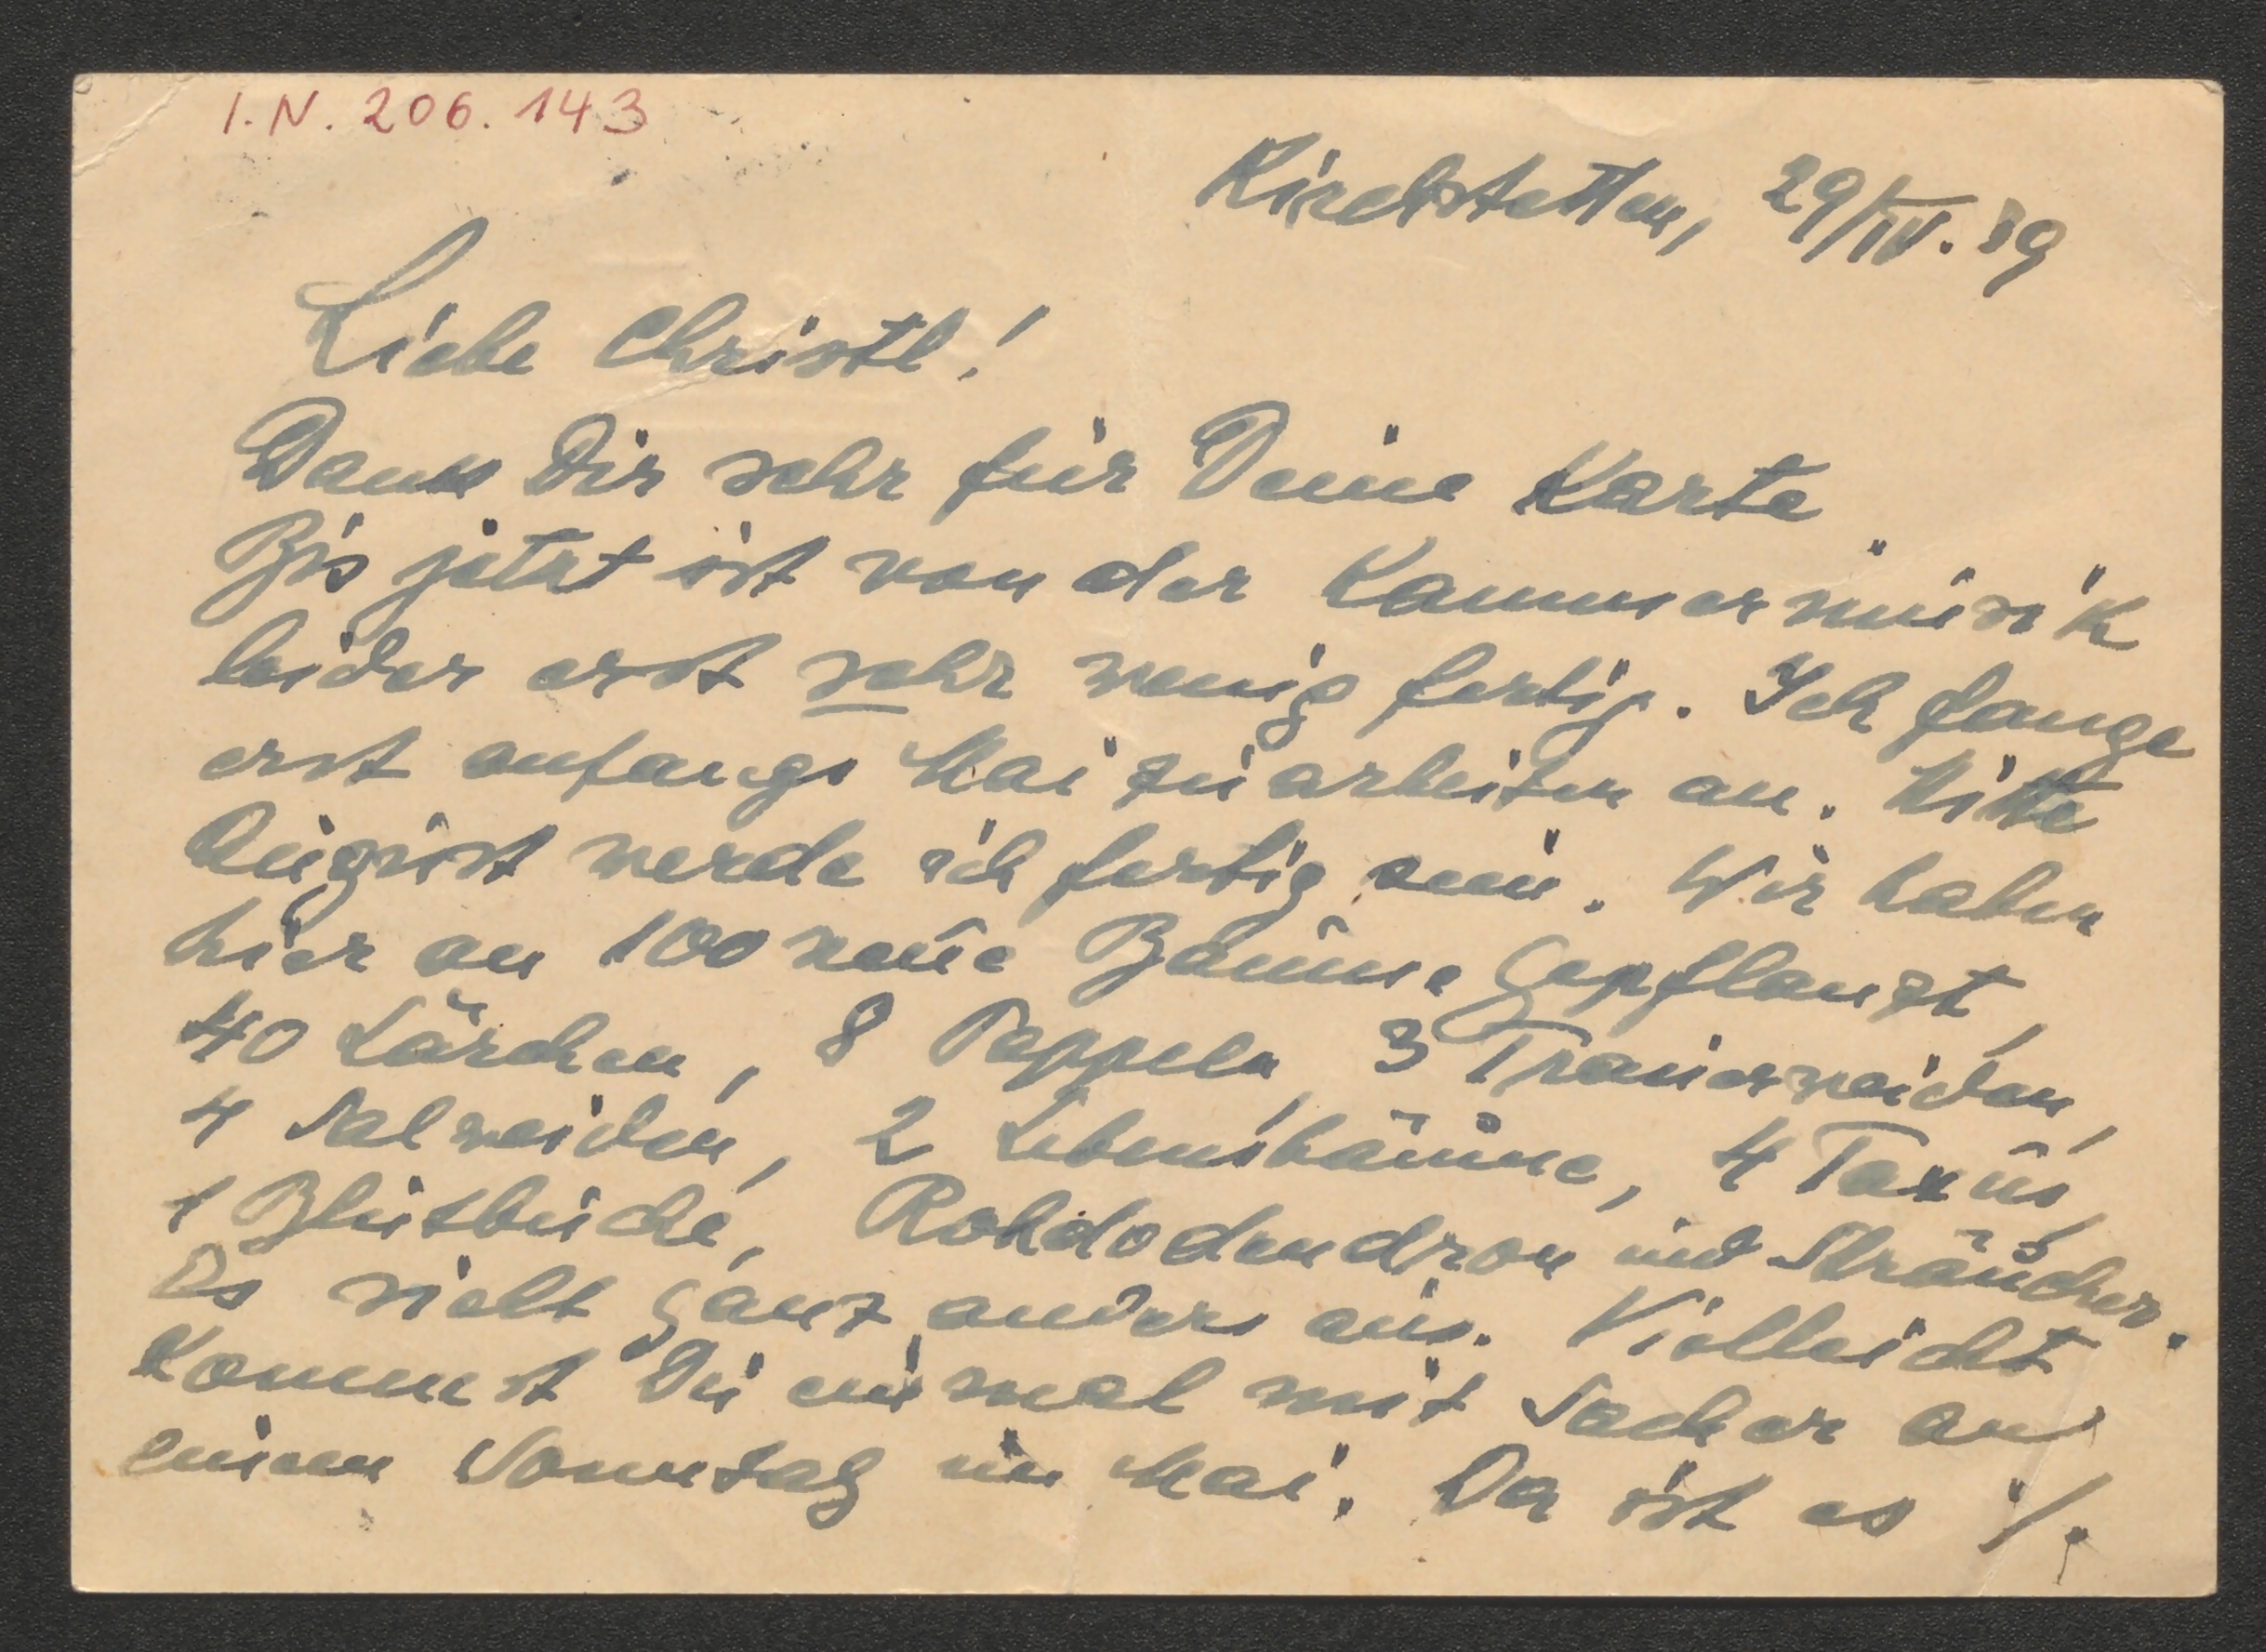 I.N. 206.143
Kirchstetten, 29/IV. 39
Liebe Christl!
Dank Dir sehr für Deine Karte.
Bis jetzt ist von der Kammermusik
leider erst sehr wenig fertig. Ich fange
erst anfangs Mai zu arbeiten an. Mitte
August werde ich fertig sein. Wir haben
hier an 100 neue Bäume gepflanzt,
40 Lärchen, 8 Pappeln, 3 Trauerweiden,
4 Salweiden, 2 Lebensbäume, 4 Taxus,
1 Blutbuche, Rohdodendron und Sträucher.
Es sieht ganz anders aus. Vielleicht
kommst Du einmal mit Sacher an
einem Sonntag im Mai. Da ist es ./.